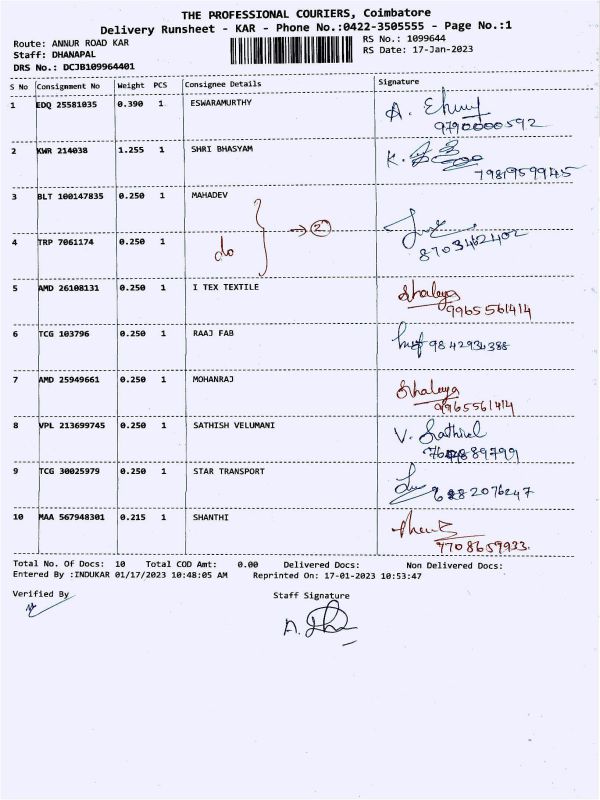 THE PROFESSIONAL COURIERS, Coimbatore
Delivery Runsheet - KAR - Phone No.:0422-3505555 - Page No.:1
Route: ANNUR ROAD KAR
RS No.: 1099644
Staff: DHANAPAL
RS Date: 17-Jan-2023
DRS No.: DCJB109964401
S No Consignment No Weight PCS Consignee Details Signature
1 EDQ 25581035 0.390 1 ESWARAMURTHY
9790000592
2 KWR 214038 1.255 1 SHRI BHASYAM
7981959945
3 BLT 100147835 0.250 1 MAHADEV
do → 2
8703462402
4 TRP 7061174 0.250 1
5 AMD 26108131 0.250 1 I TEX TEXTILE
9965561414
6 TCG 103796 0.250 1 RAAJ FAB
9842934388
7 AMD 25949661 0.250 1 MOHANRAJ
9965561414
8 VPL 213699745 0.250 1 SATHISH VELUMANI
V. Sathivel
9 TCG 30025979 0.250 1 STAR TRANSPORT
6282076247
10 MAA 567948301 0.215 1 SHANTHI
9708659933
Total No. Of Docs: 10 Total COD Amt: 0.00 Delivered Docs: Non Delivered Docs:
Entered By :INDUKAR 01/17/2023 10:48:05 AM Reprinted On: 17-01-2023 10:53:47
Verified By Staff Signature